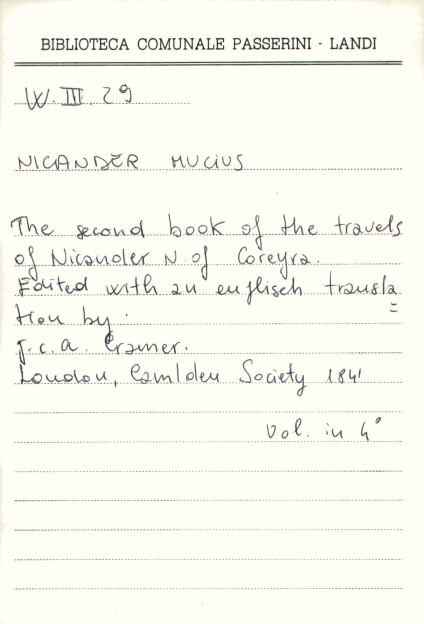 BIBLIOTECA COMUNALE PASSERINI - LANDI
W. III. 29
NICANDER MUCIUS
The second book of the travels
of Nicander N. of Coreyra.
Edited with an englisch transla=
tion by.
J.C.A. Cramer.
London, Camlden Society 1841
vol. in 4°